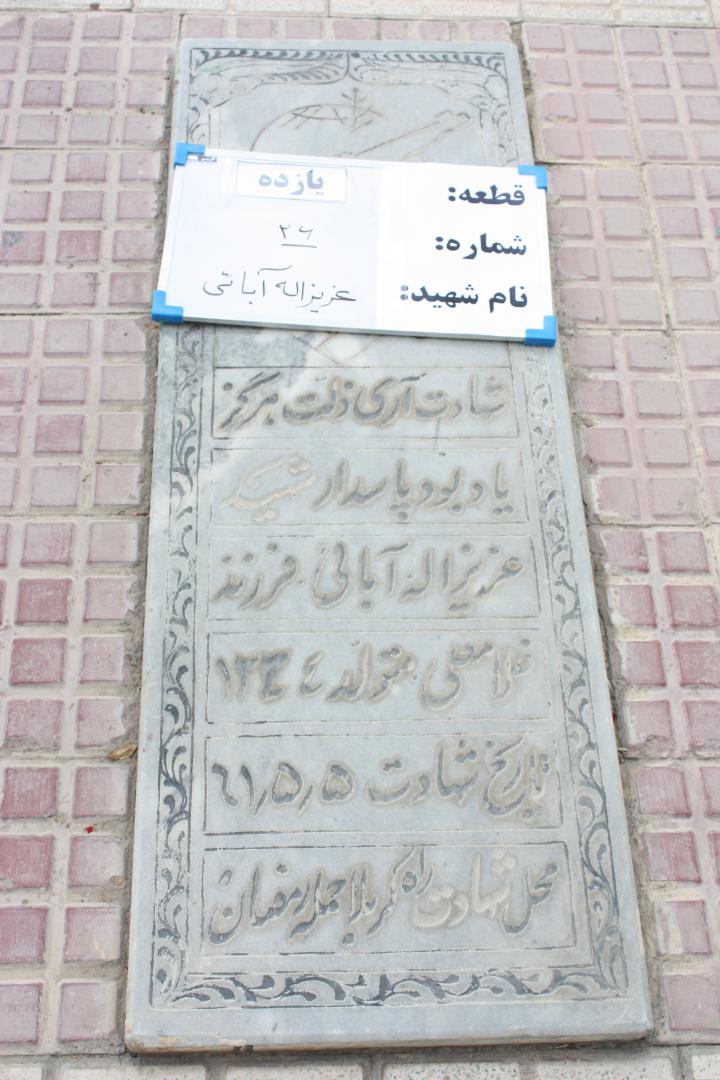 قطعه: یازده
شماره: ۲۶
نام شهید: عزیزاله آبائی
شهادت آری ذلت هرگز
یادبود پاسدار شهید
عزیزاله آبائی فرزند
غلامعلی متولد ۱۳۳۴
تاریخ شهادت ۶۱٫۵٫۵
محل شهادت راه کربلا حمله رمضان